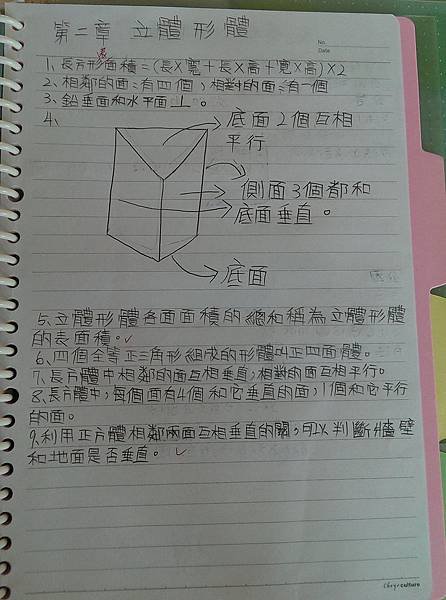 第二章 立體形體
No.
Date
1、長方形面積=(長×寬+長×高+寬×高)×2
2、相鄰的面:有四個,相對的面:有一個
3、鉛垂面和水平面⊥。
4、
底面2個互相
平行
側面3個都和
底面垂直。
底面
5、立體形體各面面積的總和稱為立體形體
的表面積。✓
6、四個全等正三角形組成的形體叫正四面體。
7、長方體中相鄰的面互相垂直;相對的面互相平行。
8、長方體中,每個面有4個和它垂直的面,1個和它平行
的面。
9、利用正方體相鄰兩面互相垂直的關,可以判斷牆壁
和地面是否垂直。✓